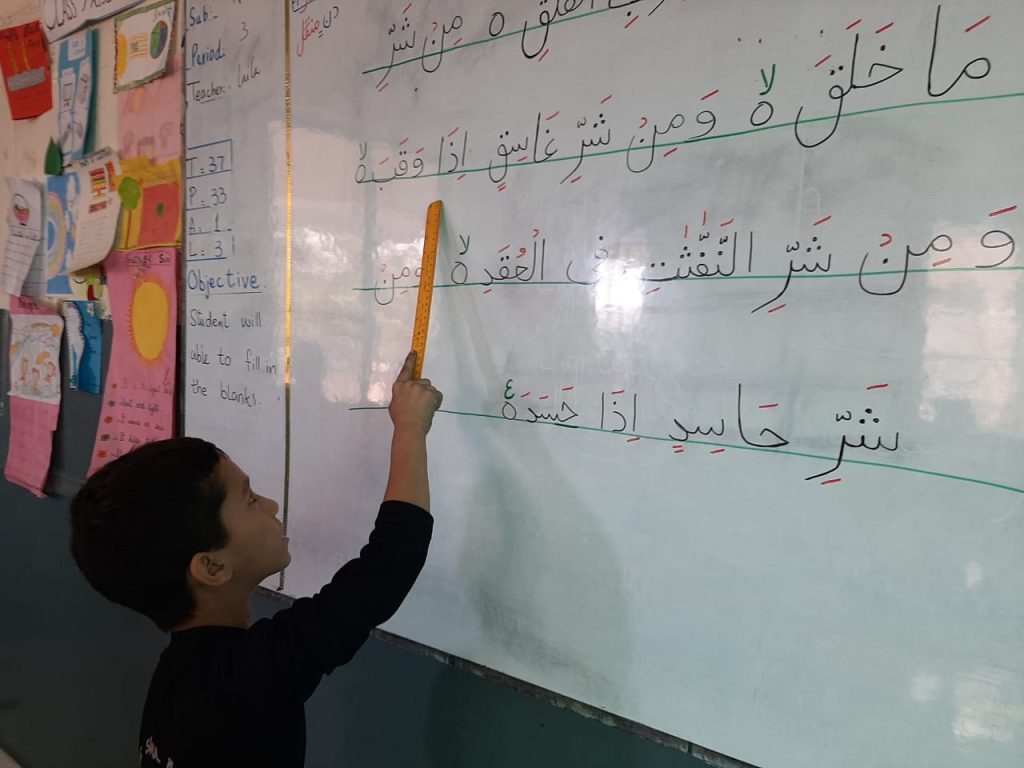 CLASS
Sub:
Period: 3
Teacher: Laila
T = 37
P = 33
A = 1
L = 3
Objective
Student will
able to fill in
the blanks.
الْفَلَقِ ہ مِنْ شَرِّ
مَا خَلَقَ ہ لا وَ مِنْ شَرِّ غَاسِقٍ اِذَا وَقَبَ ہ لا
وَ مِنْ شَرِّ النَّفّٰثٰتِ فِی الْعُقَدِ ہ لا وَ مِنْ
شَرِّ حَاسِدٍ اِذَا حَسَدَ ہ ع